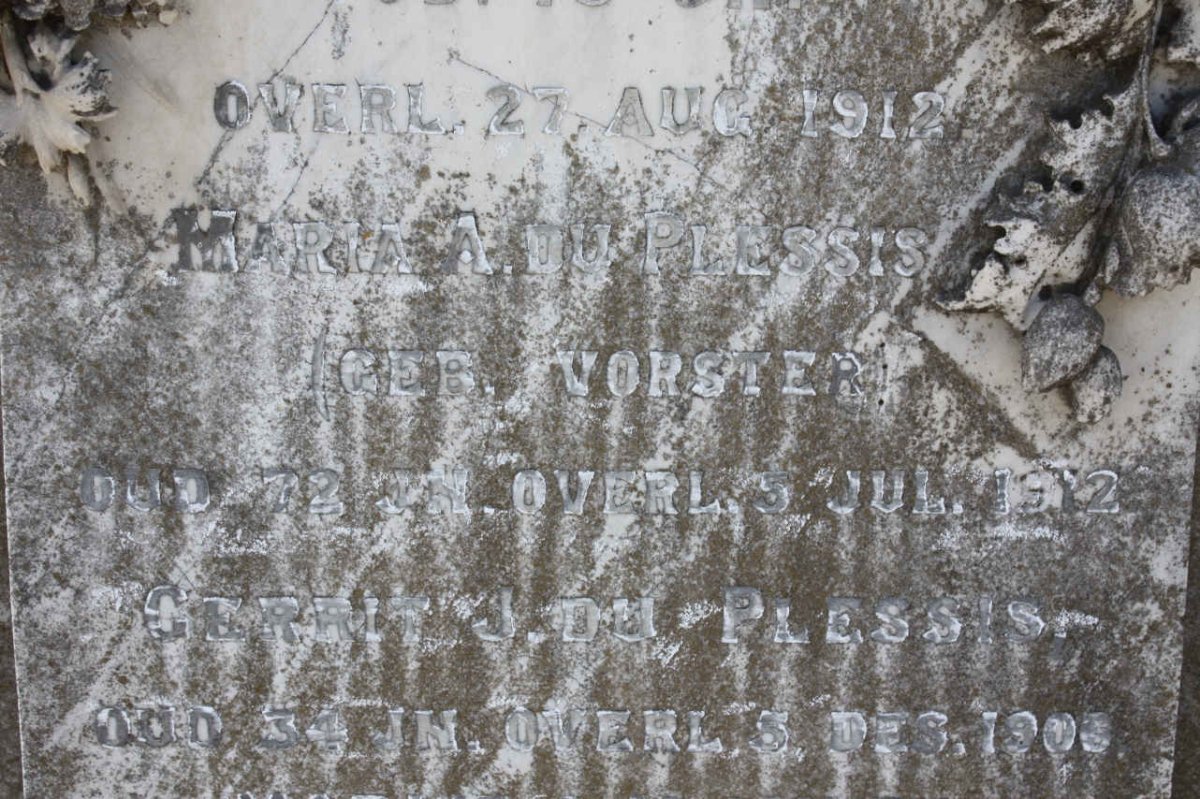 OVERL. 27. AUG. 1912
MARIA A. DU PLESSIS
(GEB. VORSTER)
OUD 72 JN. OVERL. 5 JUL. 1912
GERRIT J. DU PLESSIS,
OUD 34 JN. OVERL. 5. DES. 1905.